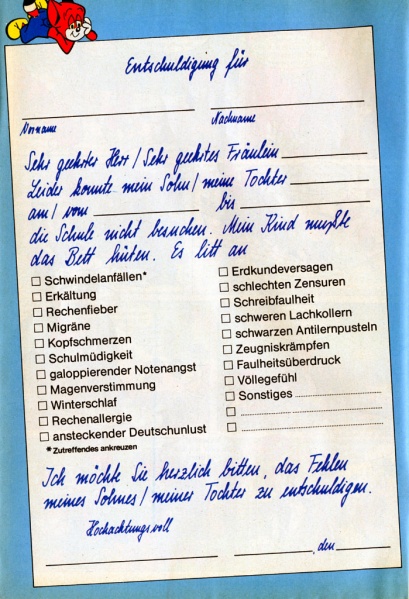 Entschuldigung für
Vorname Nachname
Sehr geehrter Herr / Sehr geehrtes Fräulein
Leider konnte mein Sohn / meine Tochter
am / vom bis
die Schule nicht besuchen. Mein Kind mußte
das Bett hüten. Es litt an
Schwindelanfällen*
Erkältung
Rechenfieber
Migräne
Kopfschmerzen
Schulmüdigkeit
galoppierender Notenangst
Magenverstimmung
Winterschlaf
Rechenallergie
ansteckender Deutschunlust
* Zutreffendes ankreuzen
Erdkundeversagen
schlechten Zensuren
Schreibfaulheit
schweren Lachkollern
schwarzen Antilernpusteln
Zeugniskrämpfen
Faulheitsüberdruck
Völlegefühl
Sonstiges
Ich möchte Sie herzlich bitten, das Fehlen
meines Sohnes / meiner Tochter zu entschuldigen.
Hochachtungsvoll
, den